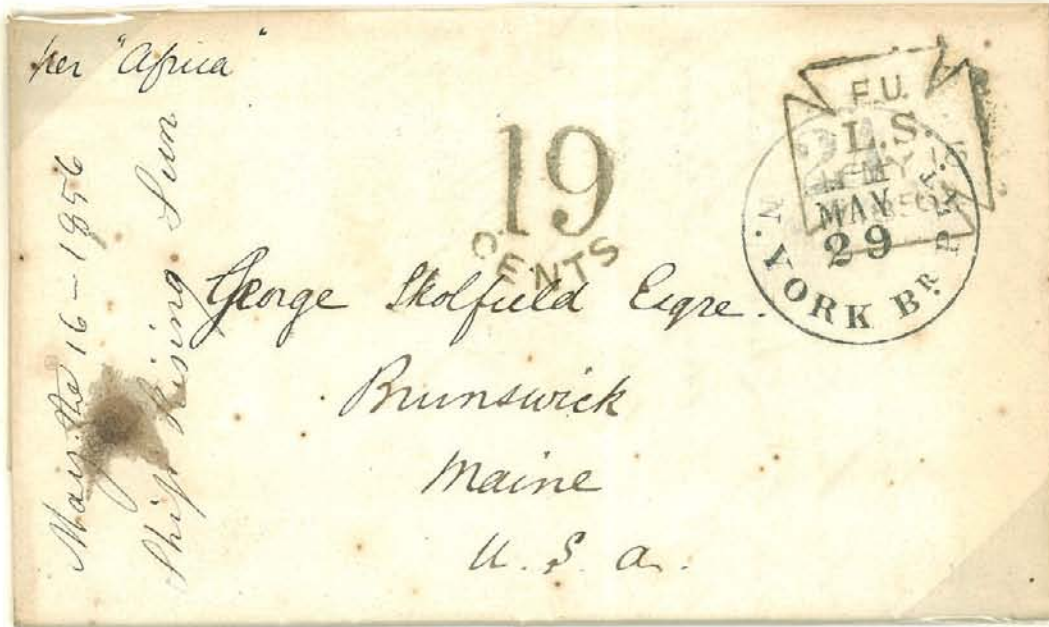 per "Africa"
May the 16 - 1856
Ship Rising Sun
19
CENTS
F.U.
L.S.
MAY
29
N. YORK BR. PKT.
George Skolfield Esqre.
Brunswick
Maine
U. S. a.